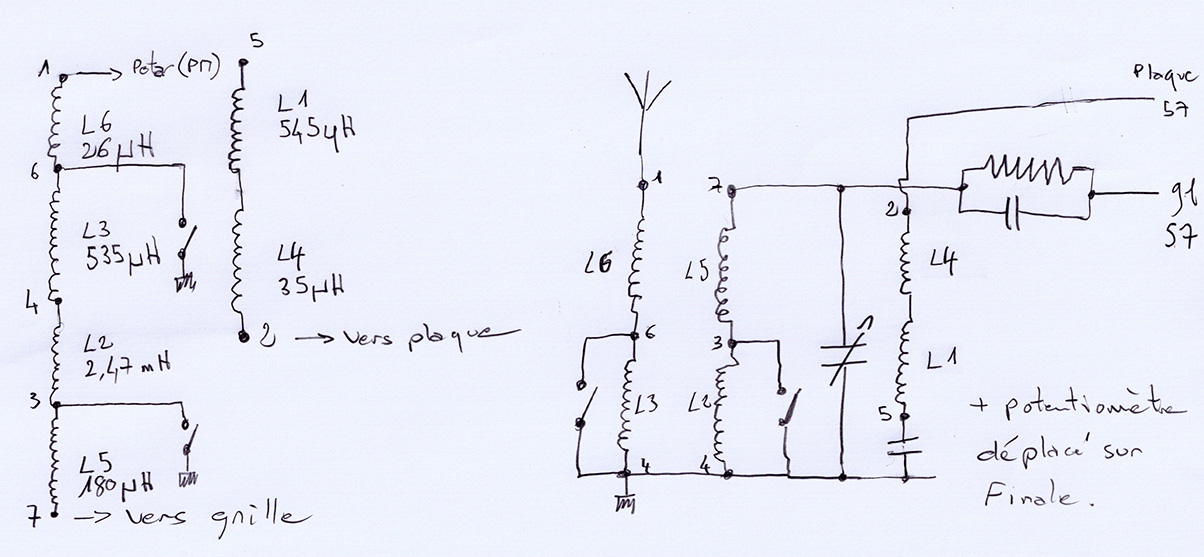 1 → Potar (PM)
L6
26 µH
6
L3
535 µH
4
L2
2,47 mH
3
L5
180 µH
7 → vers grille
5
L1
545 µH
L4
35 µH
2 → vers plaque
1
L6
6
L3
4
7
L5
3
L2
4
Plaque
57
2
L4
L1
5
g1
57
+ potentiomètre
déplacé sur
Finale.